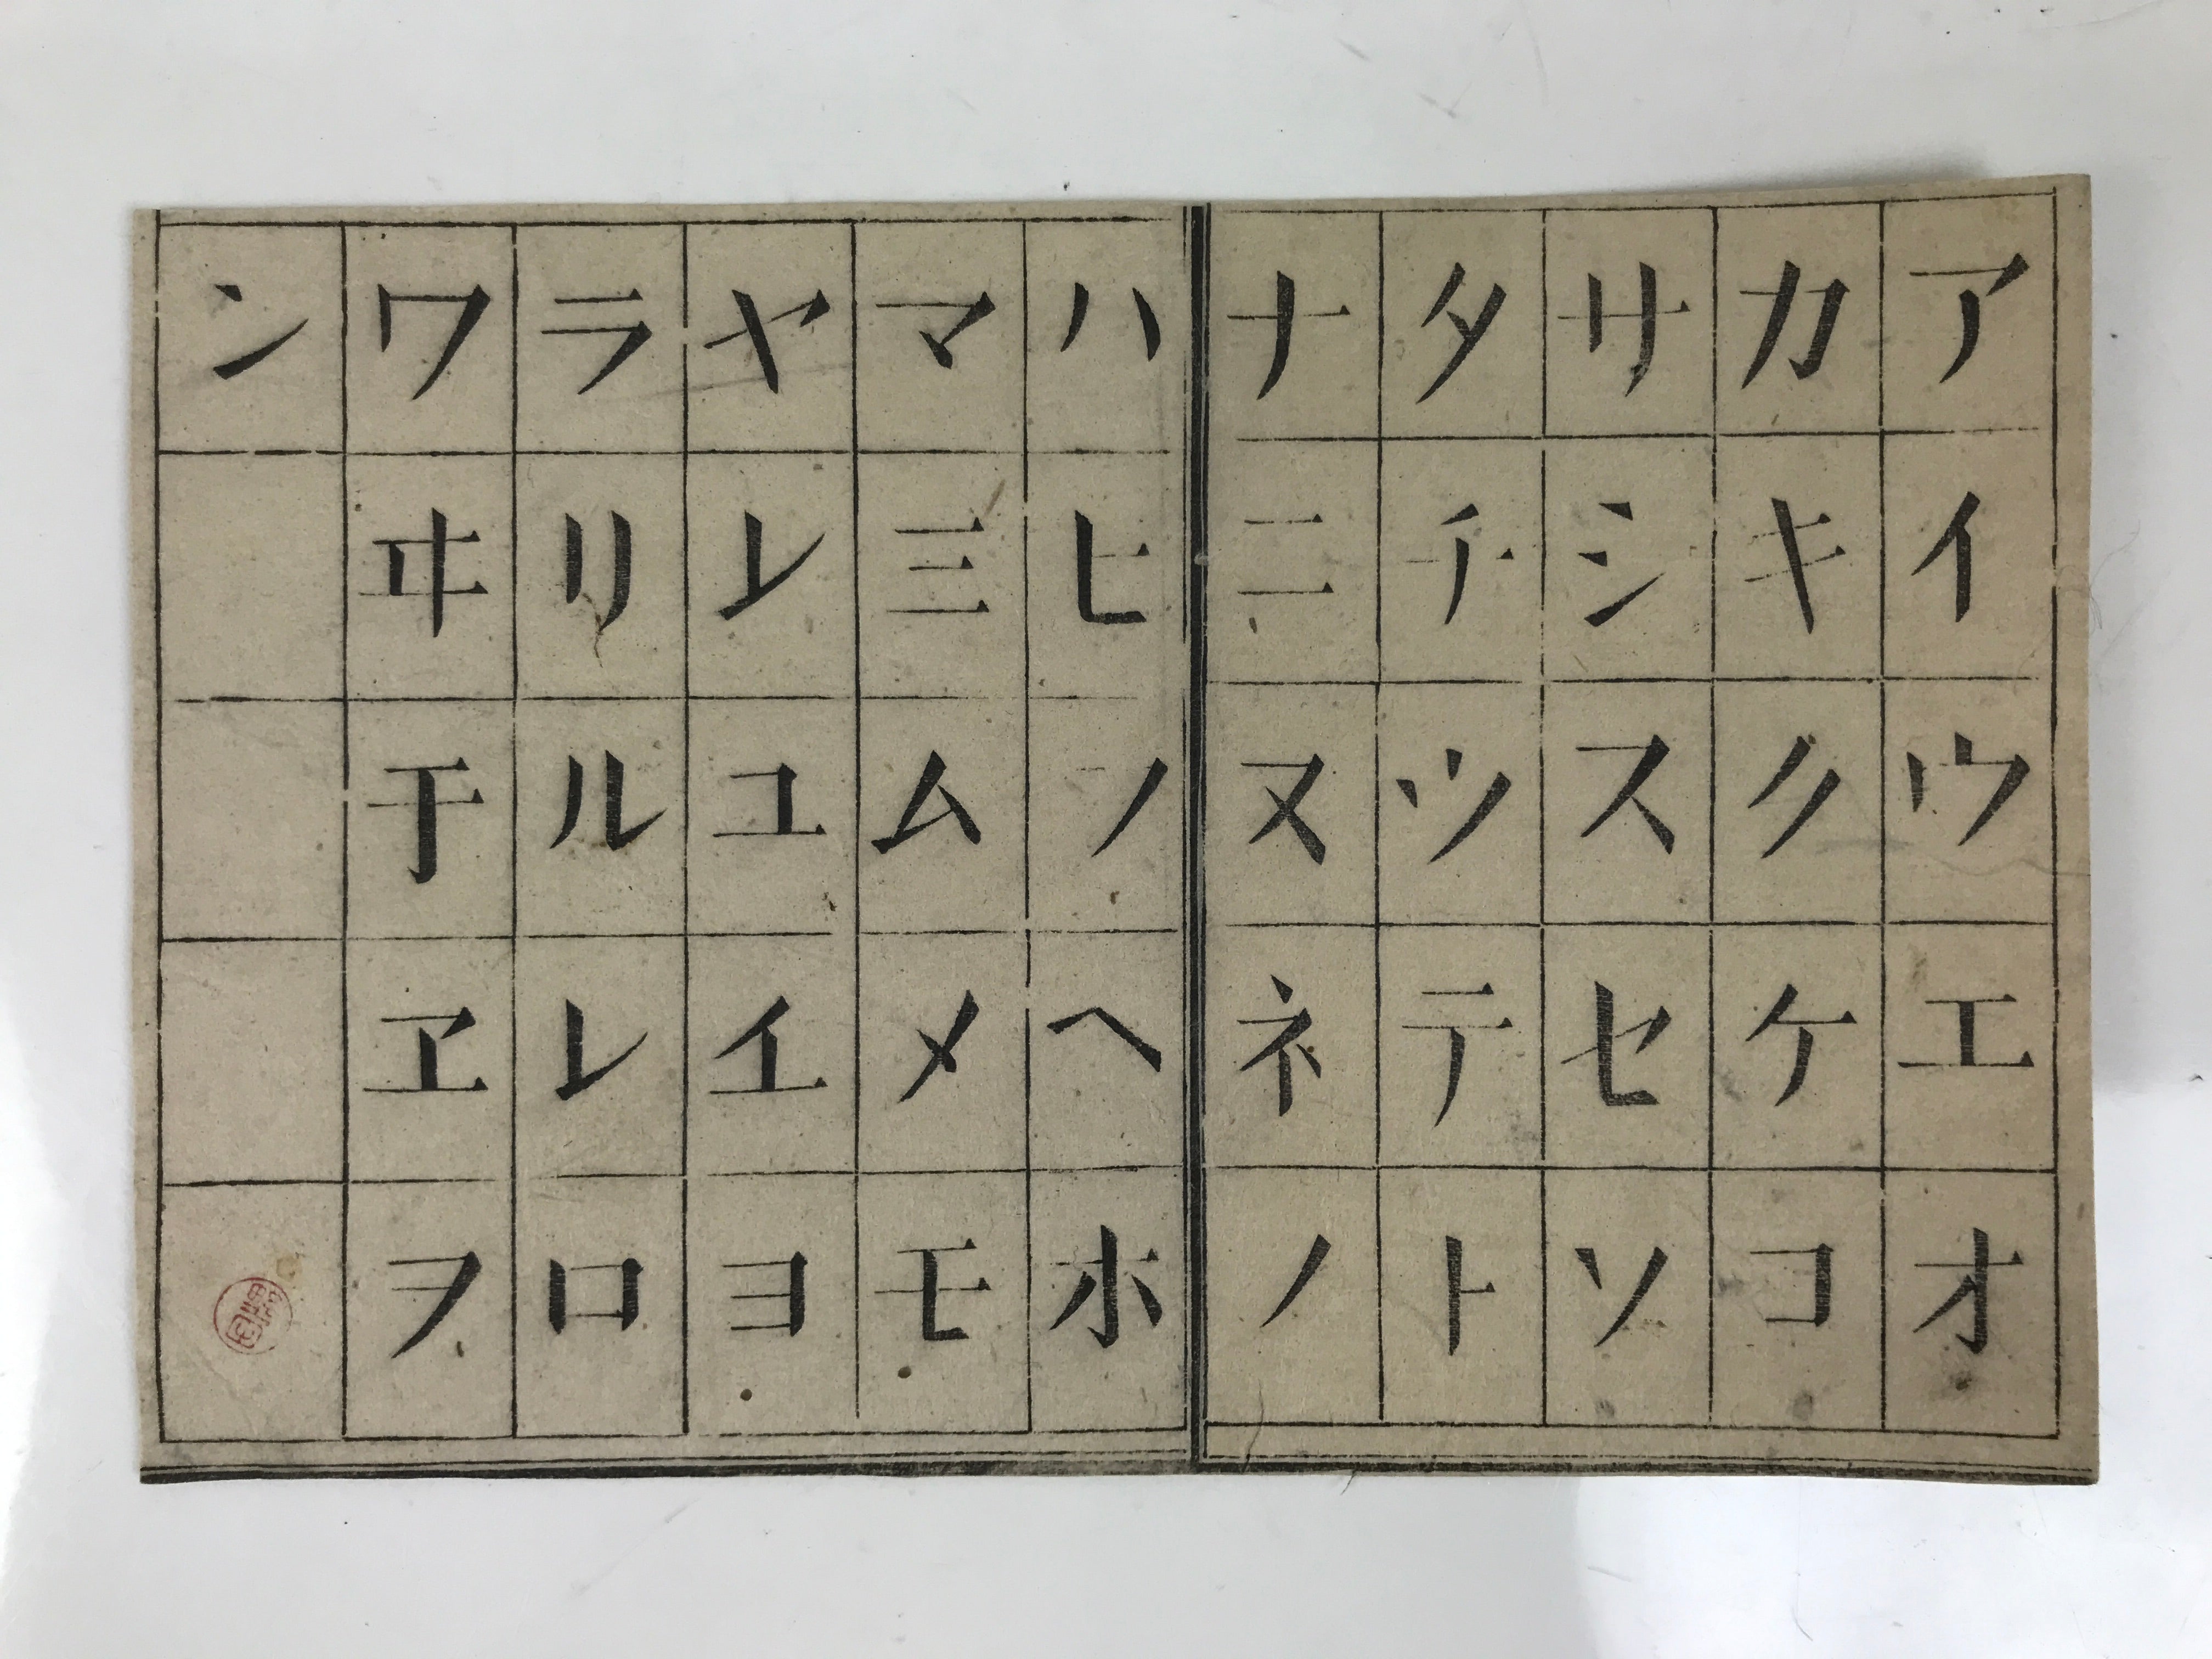 アイウエオ
カキクケコ
サシスセソ
タチツテト
ナニヌネノ
ハヒフヘホ
マ三ムメモ
ヤ𛄠ユ𛄡ヨ
ラリルレロ
ワヰ𛄢ヱヲ
ン